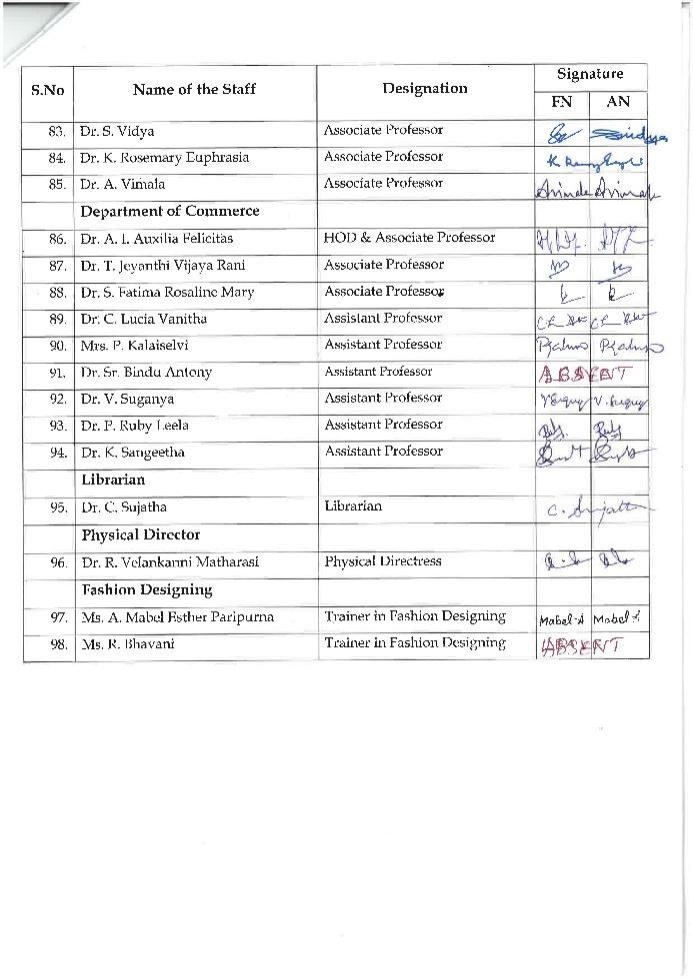 S.No Name of the Staff Designation Signature
FN AN
83. Dr. S. Vidya Associate Professor
84. Dr. K. Rosemary Euphrasia Associate Professor
85. Dr. A. Vimala Associate Professor
Department of Commerce
86. Dr. A. I. Auxilia Felicitas HOD & Associate Professor
87. Dr. T. Jeyanthi Vijaya Rani Associate Professor
88. Dr. S. Fatima Rosaline Mary Associate Professor
89. Dr. C. Lucia Vanitha Assistant Professor
90. Mrs. P. Kalaiselvi Assistant Professor
91. Dr. Sr. Bindu Antony Assistant Professor ABSENT
92. Dr. V. Suganya Assistant Professor
93. Dr. P. Ruby Leela Assistant Professor
94. Dr. K. Sangeetha Assistant Professor
Librarian
95. Dr. C. Sujatha Librarian
Physical Director
96. Dr. R. Velankanni Matharasi Physical Directress
Fashion Designing
97. Ms. A. Mabel Esther Paripurna Trainer in Fashion Designing Mabel.A Mabel
98. Ms. R. Bhavani Trainer in Fashion Designing ABSENT